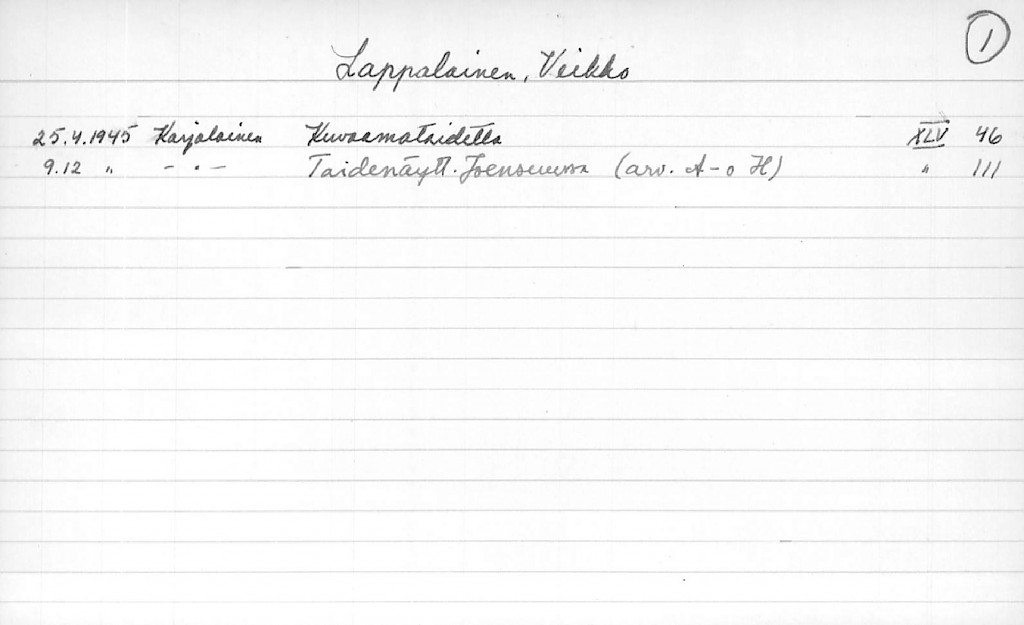 1
Lappalainen, Veikko
25.4.1945 Karjalainen Kuvaamataidetta XLV 46
9.12 " - " - Taidenäytt. Joensuussa (arv. A-o H) " 111